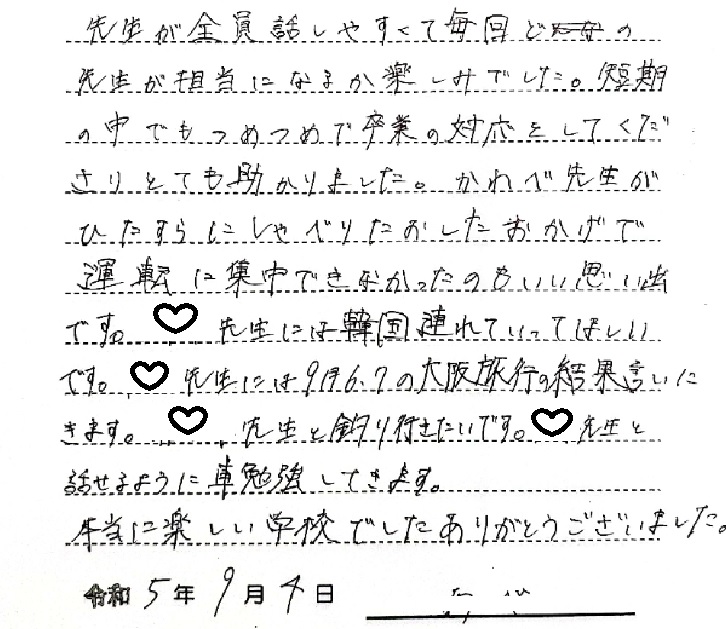 先生が全員話しやすくて毎回どの
先生が担当になるか楽しみでした。短期
の中でもつめつめで卒業の対応をしてくだ
さりとても助かりました。かわべ先生が
ひたすらにしゃべりたおしたおかげで
運転に集中できなかったのもいい思い出
です。♡先生には韓国連れていってほしい
です。♡先生には9月6.7の大阪旅行の結果言いに
きます。♡先生と釣り行きたいです。♡先生と
話せるように車勉強してきます。
本当に楽しい学校でしたありがとうございました。
令和5年9月4日